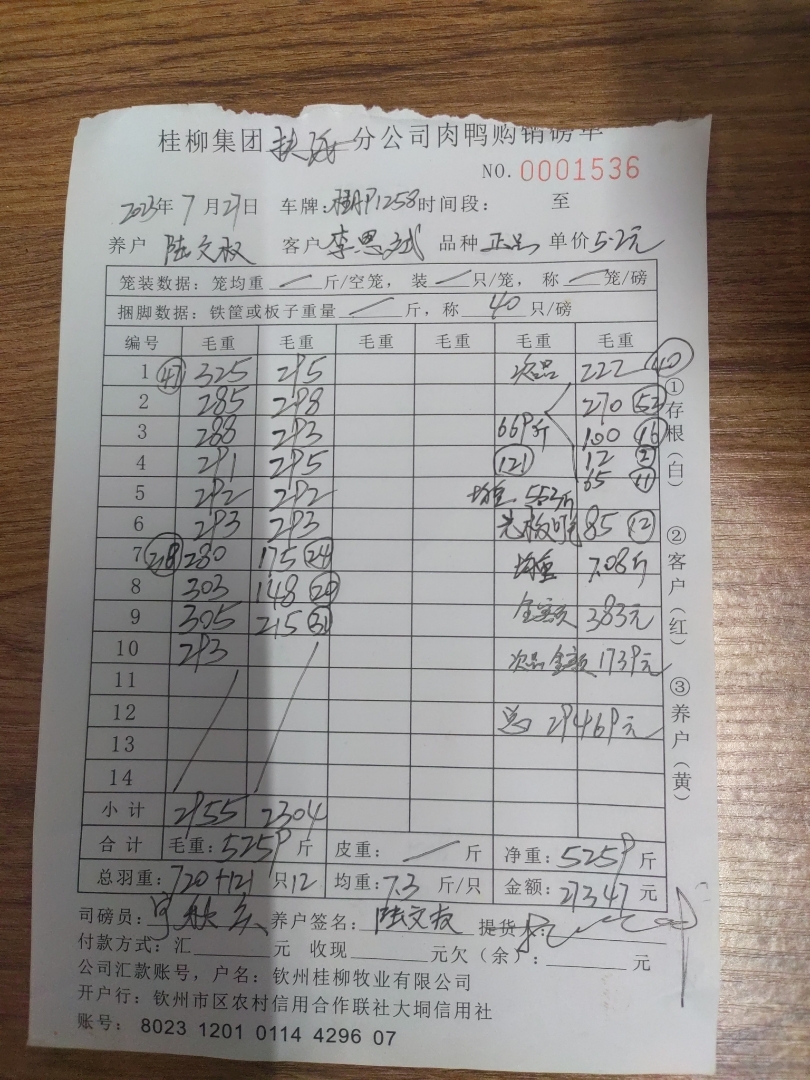 桂柳集团 扶绥 分公司肉鸭购销磅单
NO. 0001536
2023年 7 月 27日 车牌: 1258 时间段: 至
养户 陆文权 客户 李思 品种 正品 单价 5.2元
笼装数据: 笼均重 / 斤/空笼, 装 / 只/笼, 称 / 笼/磅
捆脚数据: 铁筐或板子重量 / 斤, 称 40 只/磅
编号 毛重 毛重 毛重 毛重 毛重 毛重
1 (47) 325 295 次品 222 (40)
2 285 298 270 (52)
3 288 293 669斤 100 (16)
4 291 295 (121) 12 (2)
5 292 292 均重 5.53斤 65 (11)
6 293 293 光板鸭 85 (12)
7 (278) 280 175 (24) 均重 7.08斤
8 303 148 (20) 金额 383元
9 305 215 (31)
10 293 次品金额 1739元
11
12 总 29469元
13
14
小计 2955 2304
合计 毛重: 5259 斤 皮重: / 斤 净重: 5259 斤
总羽重: 720+121 只12 均重: 7.3 斤/只 金额: 27347 元
司磅员: 养户签名: 陆文权 提货人:
付款方式: 汇 元 收现 元欠(余): 元
公司汇款账号, 户名: 钦州桂柳牧业有限公司
开户行: 钦州市区农村信用合作联社大垌信用社
账号: 8023 1201 0114 4296 07
①存根(白) ②客户(红) ③养户(黄)